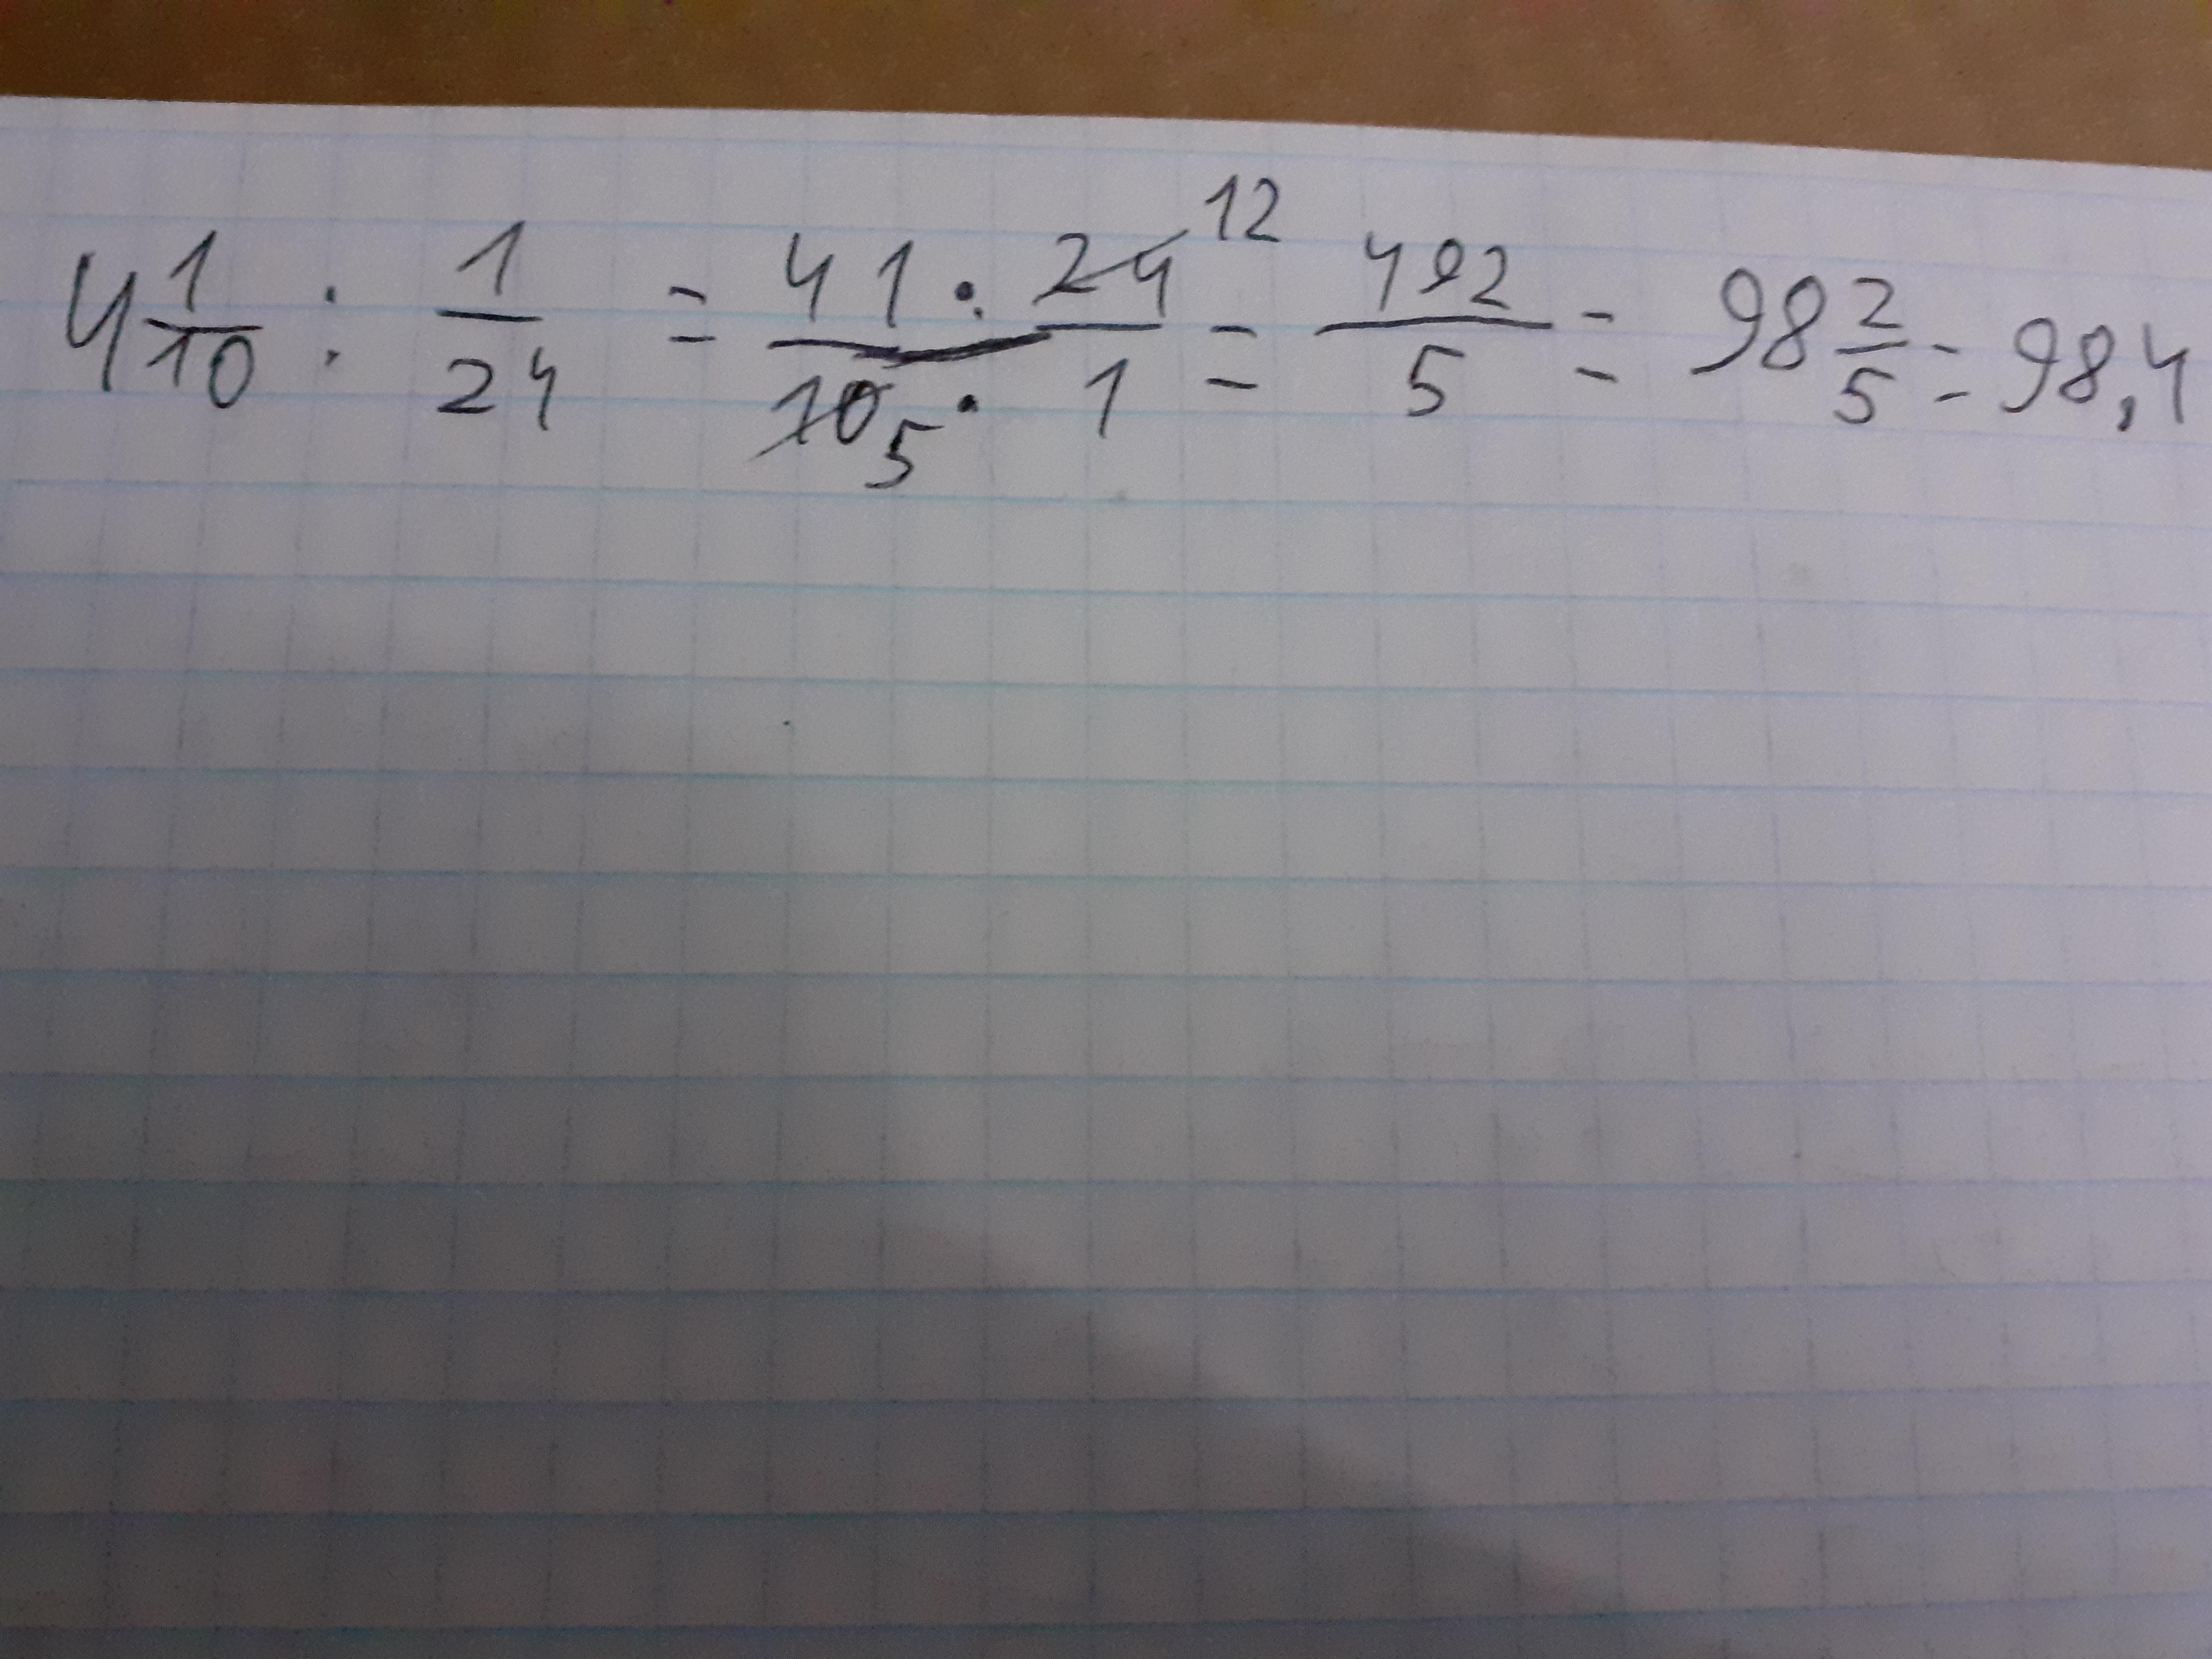 4 1/10 : 1/24 = 41 · 24 12 / 10 5 · 1 = 492/5 = 98 2/5 = 98,4